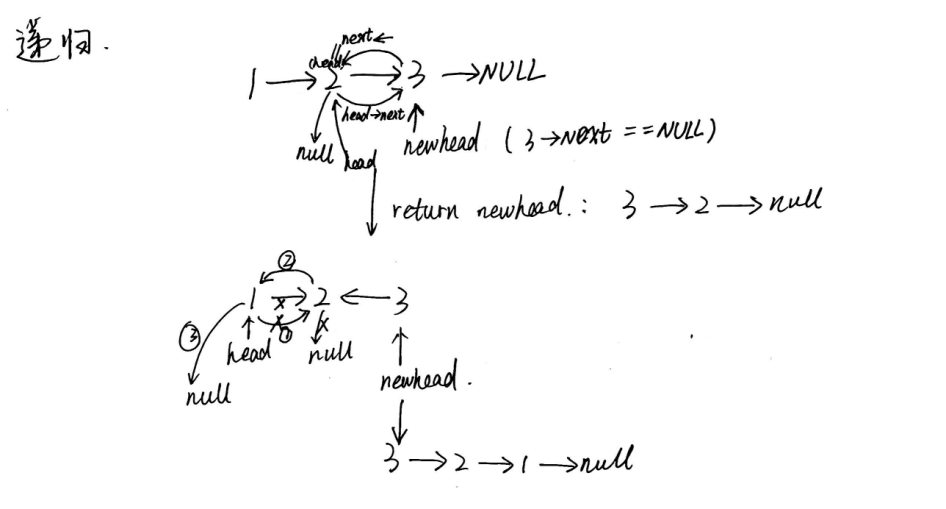 递归.
next ←
(head)
1 → 2 → 3 → NULL
head→next
null head newhead ( 3 → NEXt == NULL)
return newhead. : 3 → 2 → null
②
1 → 2 ← 3
③ ①
head null
null newhead.
3 → 2 → 1 → null